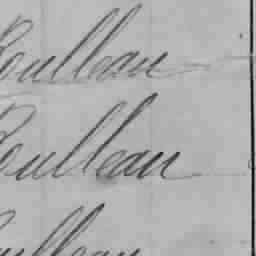 Roulleau
Roulleau
Roulleau